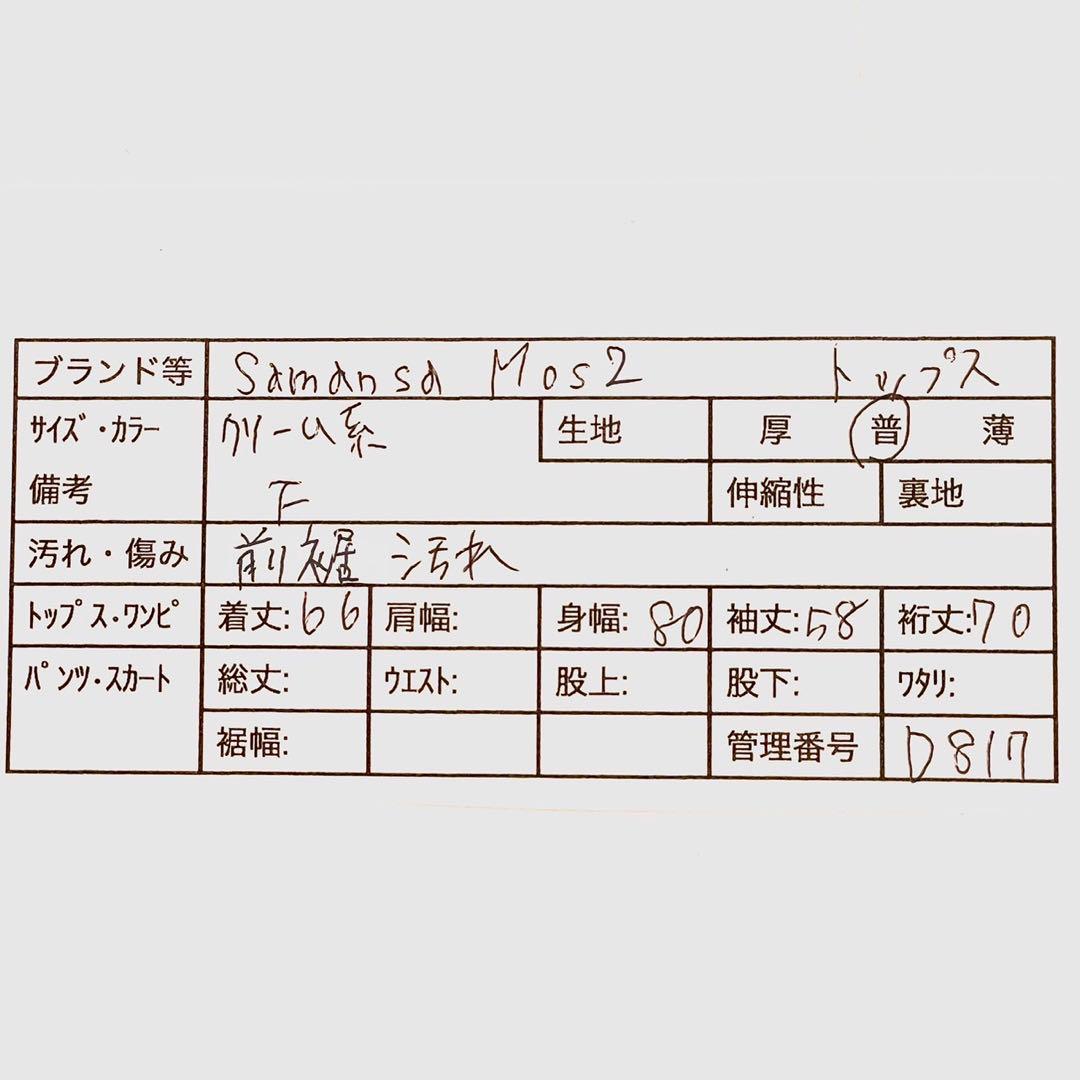 ブランド等 Samansa Mos2 トップス
サイズ・カラー クリーム系 生地 厚 普 薄
備考 F 伸縮性 裏地
汚れ・傷み 前裾 汚れ
トップス・ワンピ 着丈:66 肩幅: 身幅: 80 袖丈:58 裄丈:70
パンツ・スカート 総丈: ウエスト: 股上: 股下: ワタリ:
裾幅: 管理番号 D817